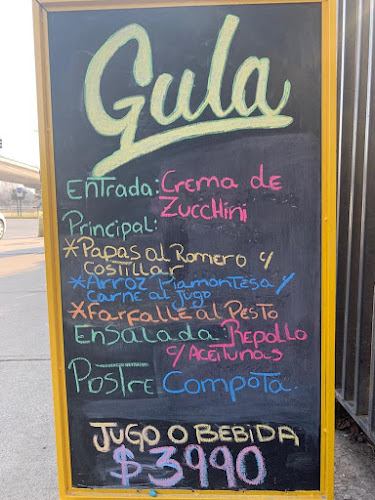 Gula
Entrada: Crema de
Zucchini
Principal:
*Papas al Romero c/
costillar
*Arroz Piamontesa y
carne al jugo
*Farfalle al Pesto
Ensalada: Repollo
c/ Aceitunas
Postre Compota.
Jugo o Bebida
$3990